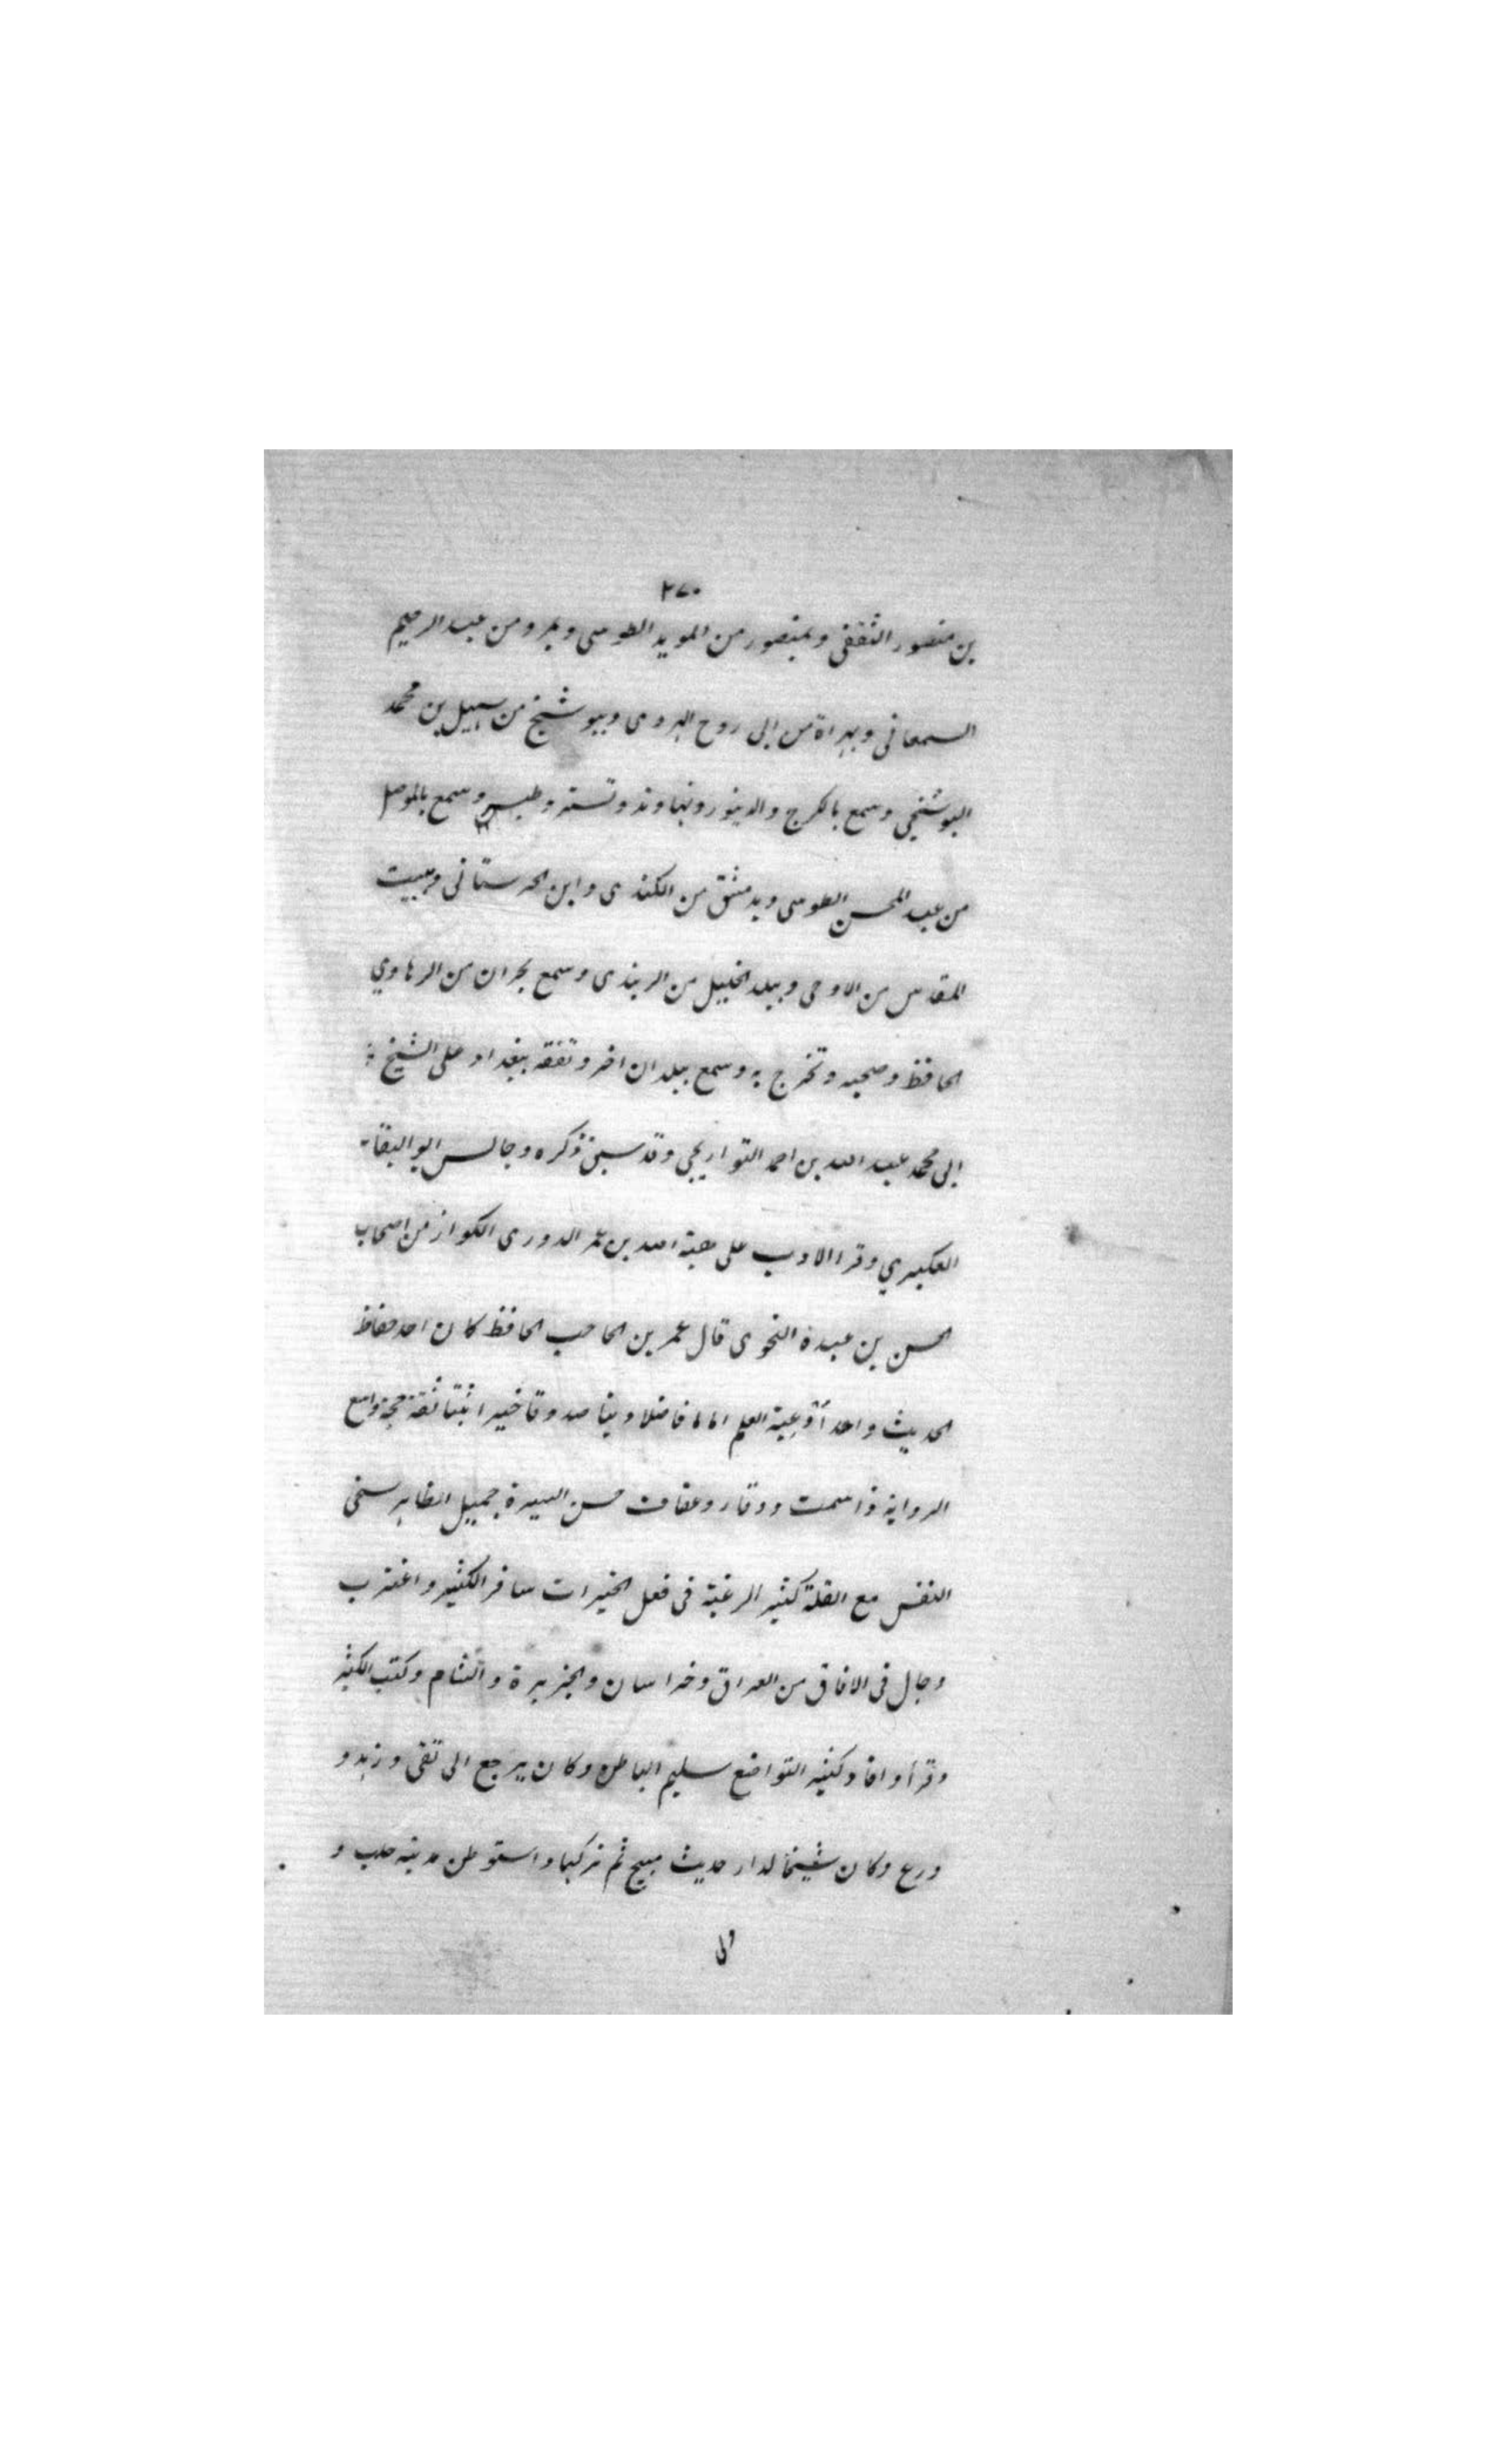 ٢٧٠
بن منصور الثقفى وبمنصور من المويد الطوسى وبمرو من عبد الرحيم
السمعانى وبهراة من ابى روح الهروى وببوشنج من سهيل بن محمد
البوشنجي وسمع بالكرج والدينور ونهاوند وتستر و وسمع بالموصل
من عبد المحسن الطوسى وبدمشق من الكندى وابن الحرستانى وببيت
المقدس من الاوحى وببلد الخليل من الربندى وسمع بحران من الرهاوي
الحافظ وصحبه وتخرج به وسمع ببلدان اخر وتفقه ببغداد على الشيخ
ابى محمد عبد الله بن احمد التواريخي وقد سبق ذكره وجالس ابو البقا
العكبري وقرا الادب على هبة الله بن عمر الدورى الكواز من اصحاب
الحسن بن عبدة النحوى قال عمر بن الحاجب الحافظ كان احد حفاظ
الحديث واحد أوعية العلم اماما فاضلا دينا صدوقا خيرا ثبتا ثقة حجة واسع
الرواية ذا سمت ووقار وعفاف حسن السيرة جميل الظاهر سخى
النفس مع القلة كثير الرغبة فى فعل الخيرات سافر الكثير واغترب
وجال فى الافاق من العراق وخراسان والجزيرة والشام وكتب الكثير
وقرأ وافاد كثير التواضع سليم الباطن وكان يرجع الى تقى وزهد و
ورع وكان شيخا لدار حديث منبج ثم تركها واستوطن مدينة حلب و
ولى